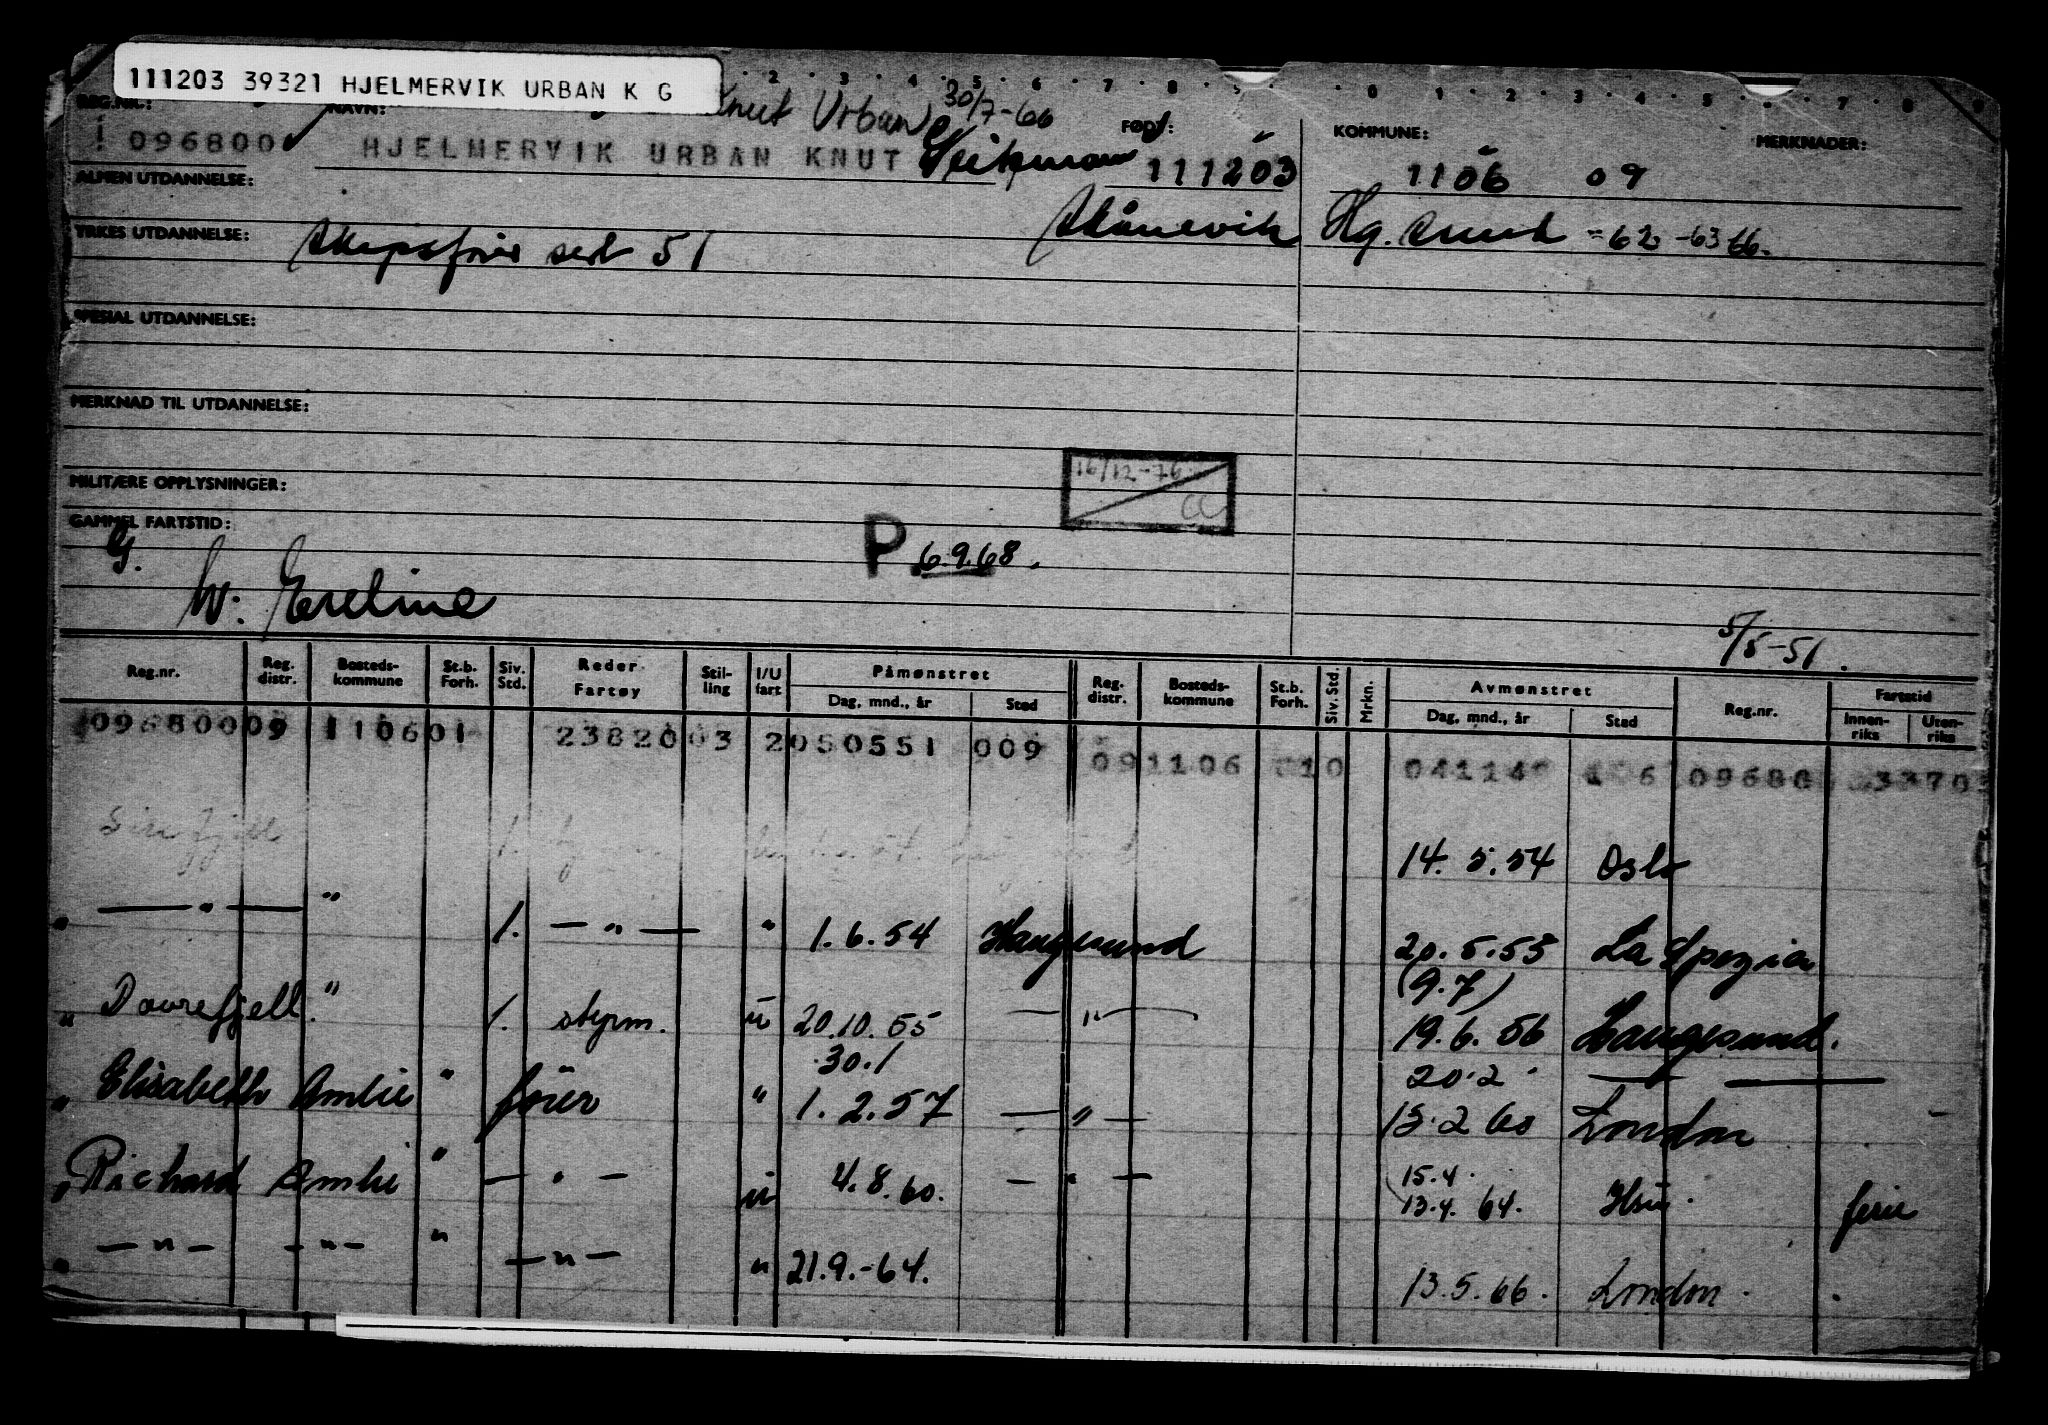 111203 39321 HJELMERVIK URBAN K G
2 3 4 5 6 7 8 9 0 1 2 3 4 5 7 8 9
REG.NR.: NAVN: Knut Urban 30/7-66 FØDT: KOMMUNE: MERKNADER:
096800 HJELMERVIK URBAN KNUT 111203 1106 09
ALMEN UTDANNELSE:
Skånevik Hg.sund -62 -63 66.
YRKES UTDANNELSE: Skipsfører sert 51
SPESIAL UTDANNELSE:
MERKNAD TIL UTDANNELSE:
16/12-76
CC
MILITÆRE OPPLYSNINGER:
GAMMEL FARTSTID:
G.
P. 6.9.68.
W: Eveline
5/5-51.
Reg.nr. Reg. distr. Bosteds-kommune St.b. Forh. Siv. Std. Reder Fartøy Stil-ling I/U fart Påmønstret Reg. distr. Bosteds-kommune St.b. Forh. Siv. Std. Mrkn. Avmønstret Reg.nr. Fartstid
Dag, mnd., år Sted Dag, mnd., år Sted Innen-riks Uten-riks
096800 09 1106 01 23820 03 2 050551 009 09 1106 010 04114 6 09680 3370
14.5.54 Oslo
— " — " 1. — " — " 1.6.54 Haugesund 20.5.55 La Spezia
(9.7)
" Dovrefjell. " 1. styrm. u 20.10.55 — " — 19.6.56 Langesund.
30.1 20.2 — —
" Elisabeth Amlie " fører " 1.2.57 — " — 13.2 60 London
15.4.
" Richard Amlie " — " — u 4.8.60. — " — 13.4.64. Hsu. ferie
" — " — — " — " — " — " 21.9.-64. 13.5.66. London.